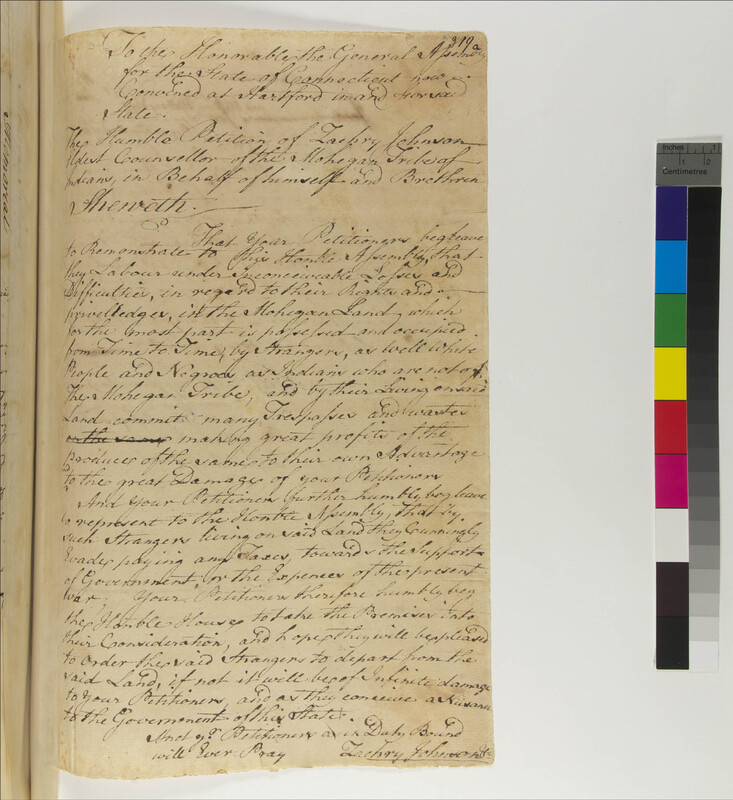 319a
To the Honorable the General Assembly
for the State of Connecticut now
Convened at Hartford in and for said
State.
The Humble Petition of Zachry Johnson
Oldest Counsellor of the Mohegan Tribe of
Indians, in Behalf of himself and Brethren
Sheweth.
That Your Petitioners beg leave
to Remonstrate to this Honble Assembly, that
they Labour under Inconceiveable Losses and
Difficulties, in regard to their Rights and
priviledges, in the Mohegan Land, which
for the most part is possessed and occupied
from Time to Time, by Strangers, as well White
People and Negroes as Indians who are not of
the Mohegan Tribe, and by their Living on said
Land commit many Trespasses and wastes
on the same making great profits of the
produce of the same to their own Advantage
to the great Damage of your Petitioners
And Your Petitioners further humbly beg leave
to represent to the Honble Assembly, that by
such Strangers living on said Land they Cunningly
Evade paying any Taxes, towards the Support
of Government, or the Expences of the present
War; Your Petitioners therefore humbly beg
the Honble House to take the Premises into
their Consideration, and hope they will be pleased
to order the said Strangers to depart from the
said Land, if not it will be of Infinite damage
to Your Petitioners, and as they conceive a Nusance
to the Government of this State.
And yr. Petitioners as in Duty Bound
will Ever Pray Zachry Johnson &c
Inches 1
1 2
Centimetres